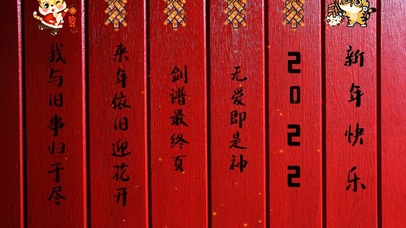 我与旧事归于尽
来年依旧迎花开
剑谱最终页
无爱即是神
2022
新年快乐